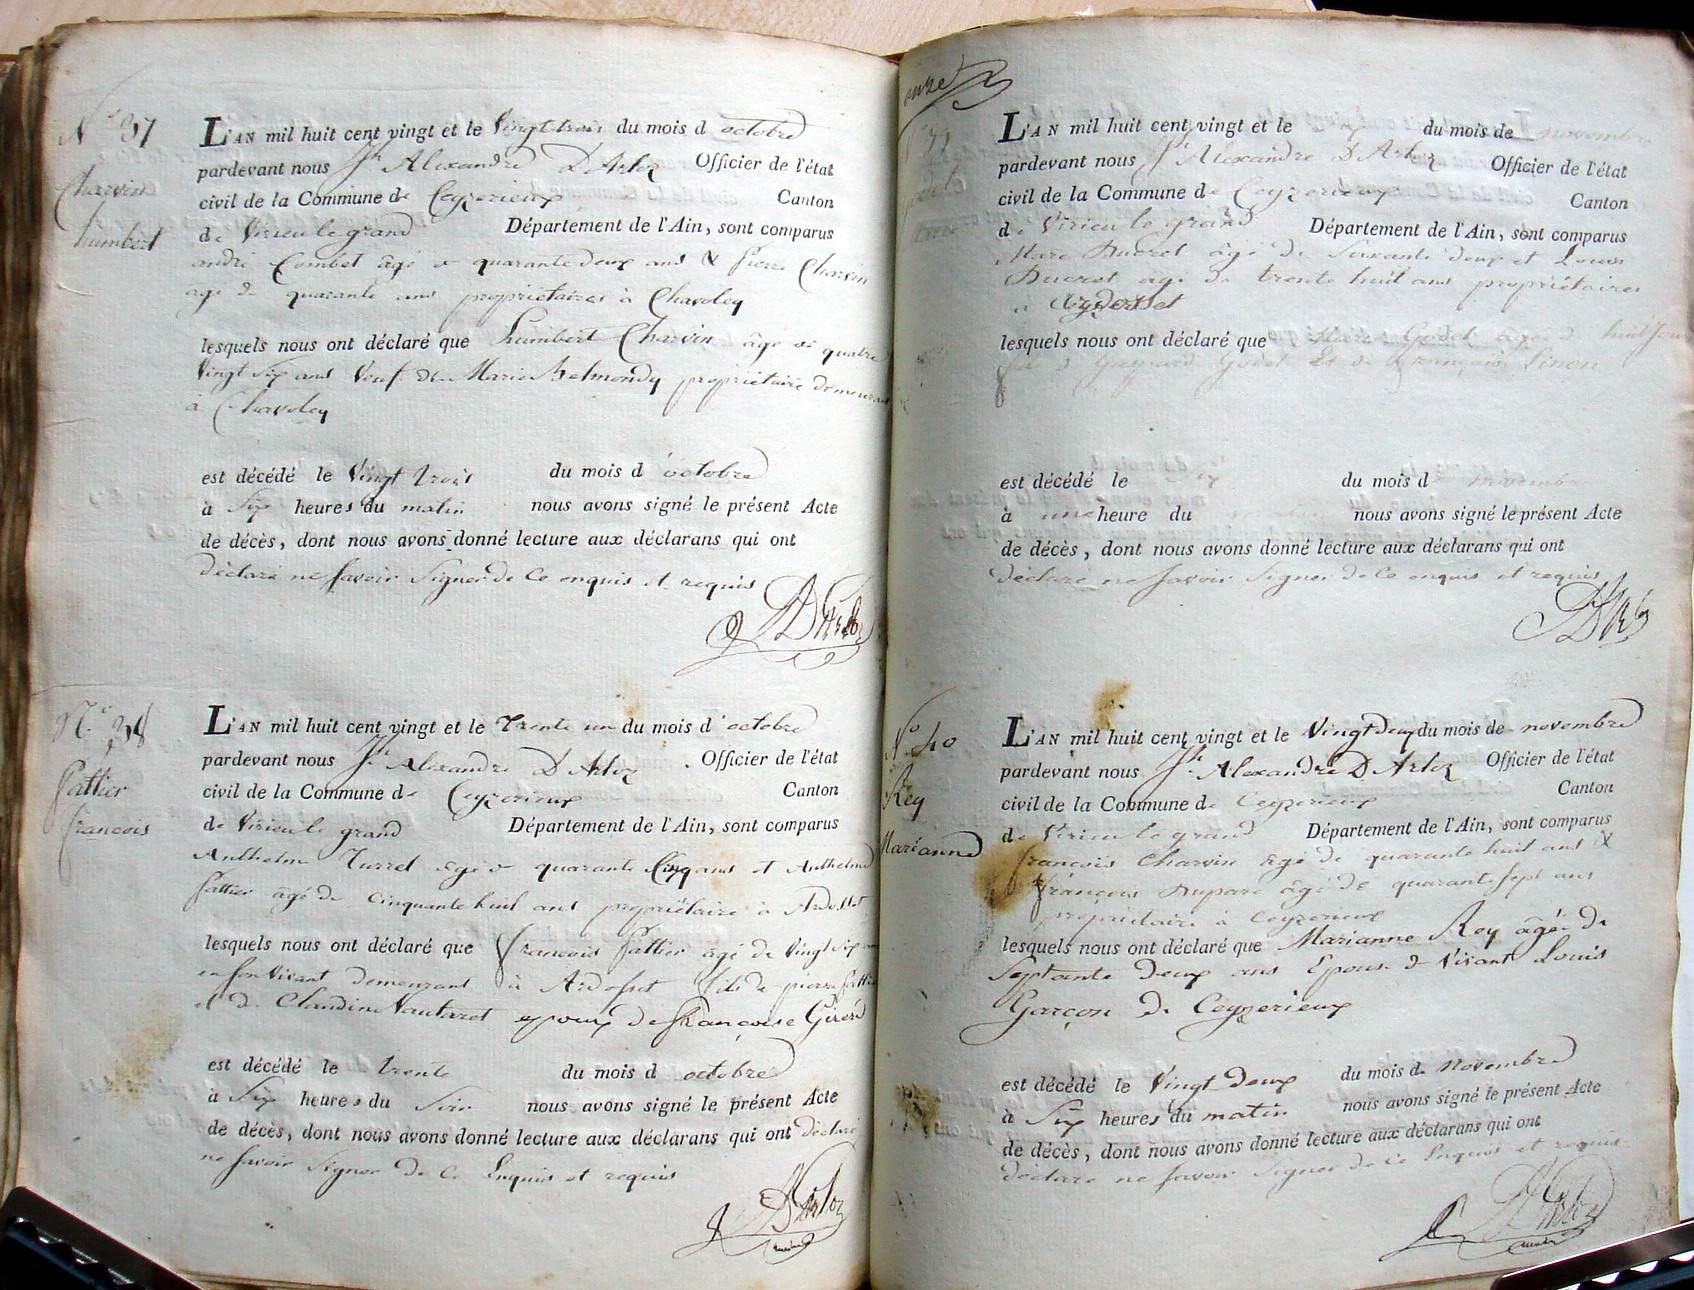 N.° 37
Charvin
humbert
L'AN mil huit cent vingt et le Vingt trois du mois d octobre
pardevant nous Jh Alexandre D'Arloz Officier de l'état
civil de la Commune de Ceyzerieux Canton
de Virieu le grand Département de l'Ain, sont comparus
andré Combet âgé de quarante deux ans & pierre Charvin
âgé de quarante ans propriétaires à Chavoley
lesquels nous ont déclaré que humbert Charvin âgé de quatre
Vingt Six ans Veuf de Marie Belmondy propriétaire demeurant
à Chavoley
est décédé le Vingt trois du mois d'octobre
à Six heures du matin nous avons signé le présent Acte
de décès, dont nous avons donné lecture aux déclarans qui ont
déclaré ne Savoir Signer de Ce enquis et requis
D'Arloz
N.° 38
fattier
francois
L'AN mil huit cent vingt et le Trente un du mois d'octobre
pardevant nous Jh Alexandre D'Arloz Officier de l'état
civil de la Commune de Ceyzerieux Canton
de Virieu le grand Département de l'Ain, sont comparus
Anthelme Turrel âgé de quarante Cinq ans et Anthelme
fattier âgé de cinquante huit ans propriétaire à Ardosset
lesquels nous ont déclaré que francois fattier âgé de Vingt Six ans
en Son Vivant demeurant à Ardosset fils de pierre fattier
et de Claudine Vautaret epoux de françoise Girerd
est décédé le trente du mois d octobre
à Six heures du Soir nous avons signé le présent Acte
de décès, dont nous avons donné lecture aux déclarans qui ont déclaré
ne Savoir Signer de Ce Enquis et requis
D'Arloz
onze
L'AN mil huit cent vingt et le du mois de novembre
pardevant nous Jh Alexandre D'Arloz Officier de l'état
civil de la Commune de Ceyzerieux Canton
de Virieu le grand Département de l'Ain, sont comparus
Marc Ducret âgé de Soixante deux et Louis
Ducret âgé de trente huit ans propriétaires
à Ardosset
lesquels nous ont déclaré que Godet âgée de huit jours
de Godet Et de françoise
est décédé le du mois d novembre
à une heure du nous avons signé le présent Acte
de décès, dont nous avons donné lecture aux déclarans qui ont
déclaré ne Savoir Signer de Ce enquis et requis
D'Arloz
N.° 40
Rey
Marianne
L'AN mil huit cent vingt et le Vingt Deux du mois de novembre
pardevant nous Jh Alexandre D'Arloz Officier de l'état
civil de la Commune de Ceyzerieux Canton
de Virieu le grand Département de l'Ain, sont comparus
françois Charvin âgé de quarante huit ans &
françois Duparc âgé de quarante Sept ans
propriétaire à Ceyzerieux
lesquels nous ont déclaré que Marianne Rey âgée de
Septante Deux ans Epouse de Vivant Louis
Garçon de Ceyzerieux
est décédé le Vingt Deux du mois de Novembre
à Six heures du matin nous avons signé le présent Acte
de décès, dont nous avons donné lecture aux déclarans qui ont
déclaré ne Savoir Signer de Ce Enquis et requis
D'Arloz